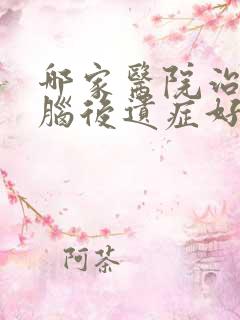 哪家醫院治
腦後遺症好
阿茶